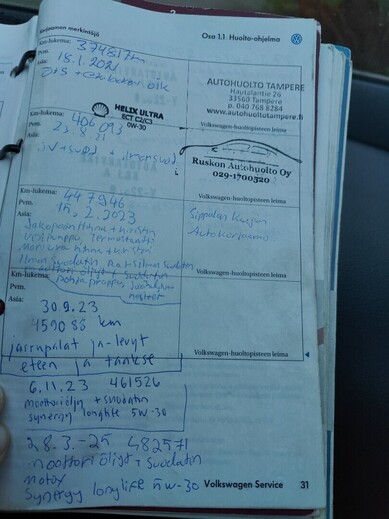 Osa 1.1: Huolto-ohjelma
Km-lukema: 374817km
Pvm. 18.1.2021
AUTOHUOLTO TAMPERE
Hautalantie 26
33560 Tampere
p. 040 768 8244
www.autohuoltotampere.fi
Volkswagen-huoltopisteen leima
Km-lukema: 406 093
HELIX ULTRA
ECT C2/C3
0W-30
Pvm. 23.8.21
Asia:
Ruskon Autohuolto Oy
029-1700320
Volkswagen-huoltopisteen leima
Km-lukema: 447946
Pvm. 15.2.2023
Asia: Jakopään hihna + kiristin
vesipumppu, termostaatti
Ilman Suodatin
Moottori öljyt + suodatin
Volkswagen-huoltopisteen leima
Km-lukema:
Pvm.
Asia: 30.9.23
459086 km
jarrupalat ja-levyt
eteen ja taakse
Volkswagen-huoltopisteen leima
6.11.23 461526
moottoriöljyn + suodatin
synergy longlife 5W-30
28.3.-25 482571
moottori öljyt + suodatin
motox
Synergy longlife 5w-30
Volkswagen Service 31